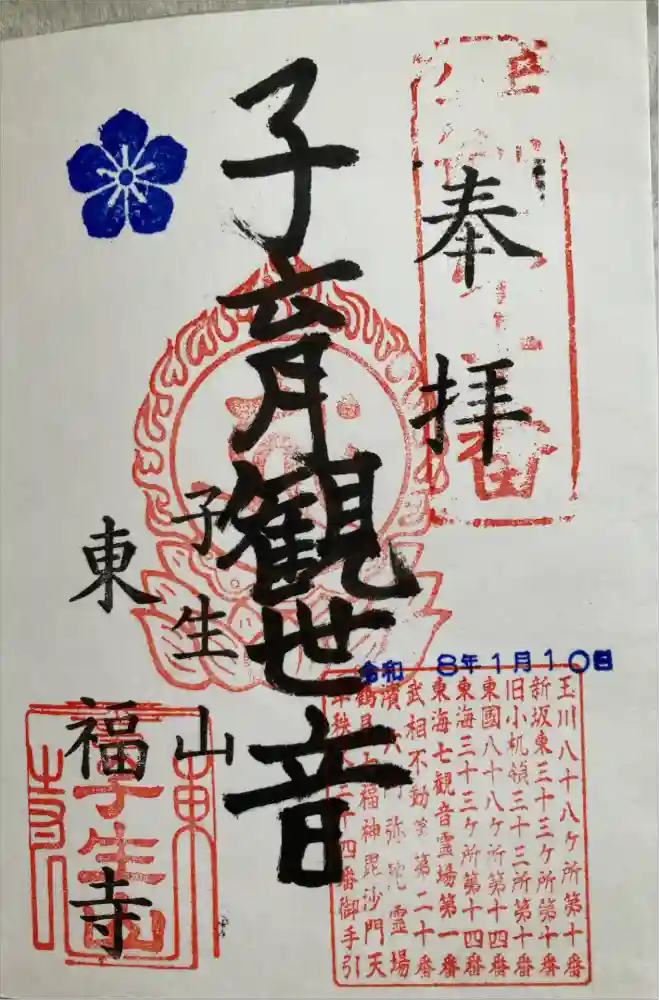 奉拝
子育観世音
子生山
東福寺
令和 8年1月10日
玉川八十八ヶ所第十番
新坂東三十三ヶ所第十番
旧小机領三十三所第十番
東國八十八ヶ所第十四番
東海三十三ヶ所第十四番
東海七観音霊場第一番
武相不動 第二十番
霊場
鶴見七福神毘沙門天
四番御手引
東
子生山
寺